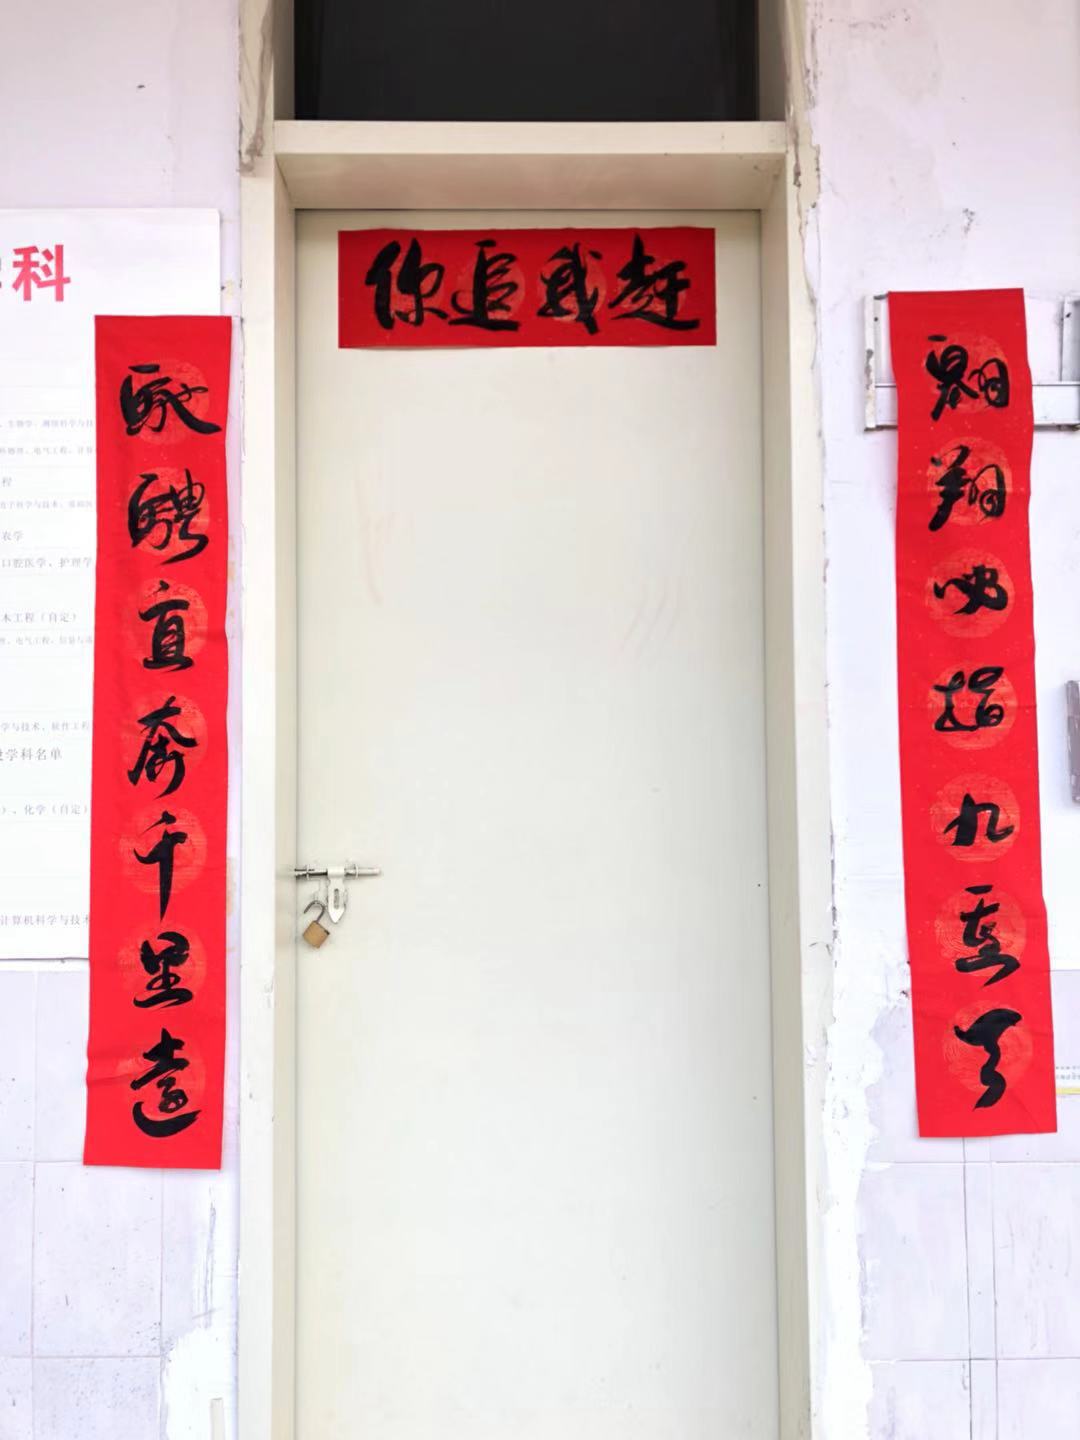 你追我赶
翱翔
指九重天
馳騁直奔千里遠
科
、生物学、测绘科学与技
、电气工程、计算
程
电子科学与技术、
农学
口腔医学、护理学
木工程（自定）
、电气工程、信息与通
学与技术、软件工程
学科名单
）、化学（自定）
计算机科学与技术